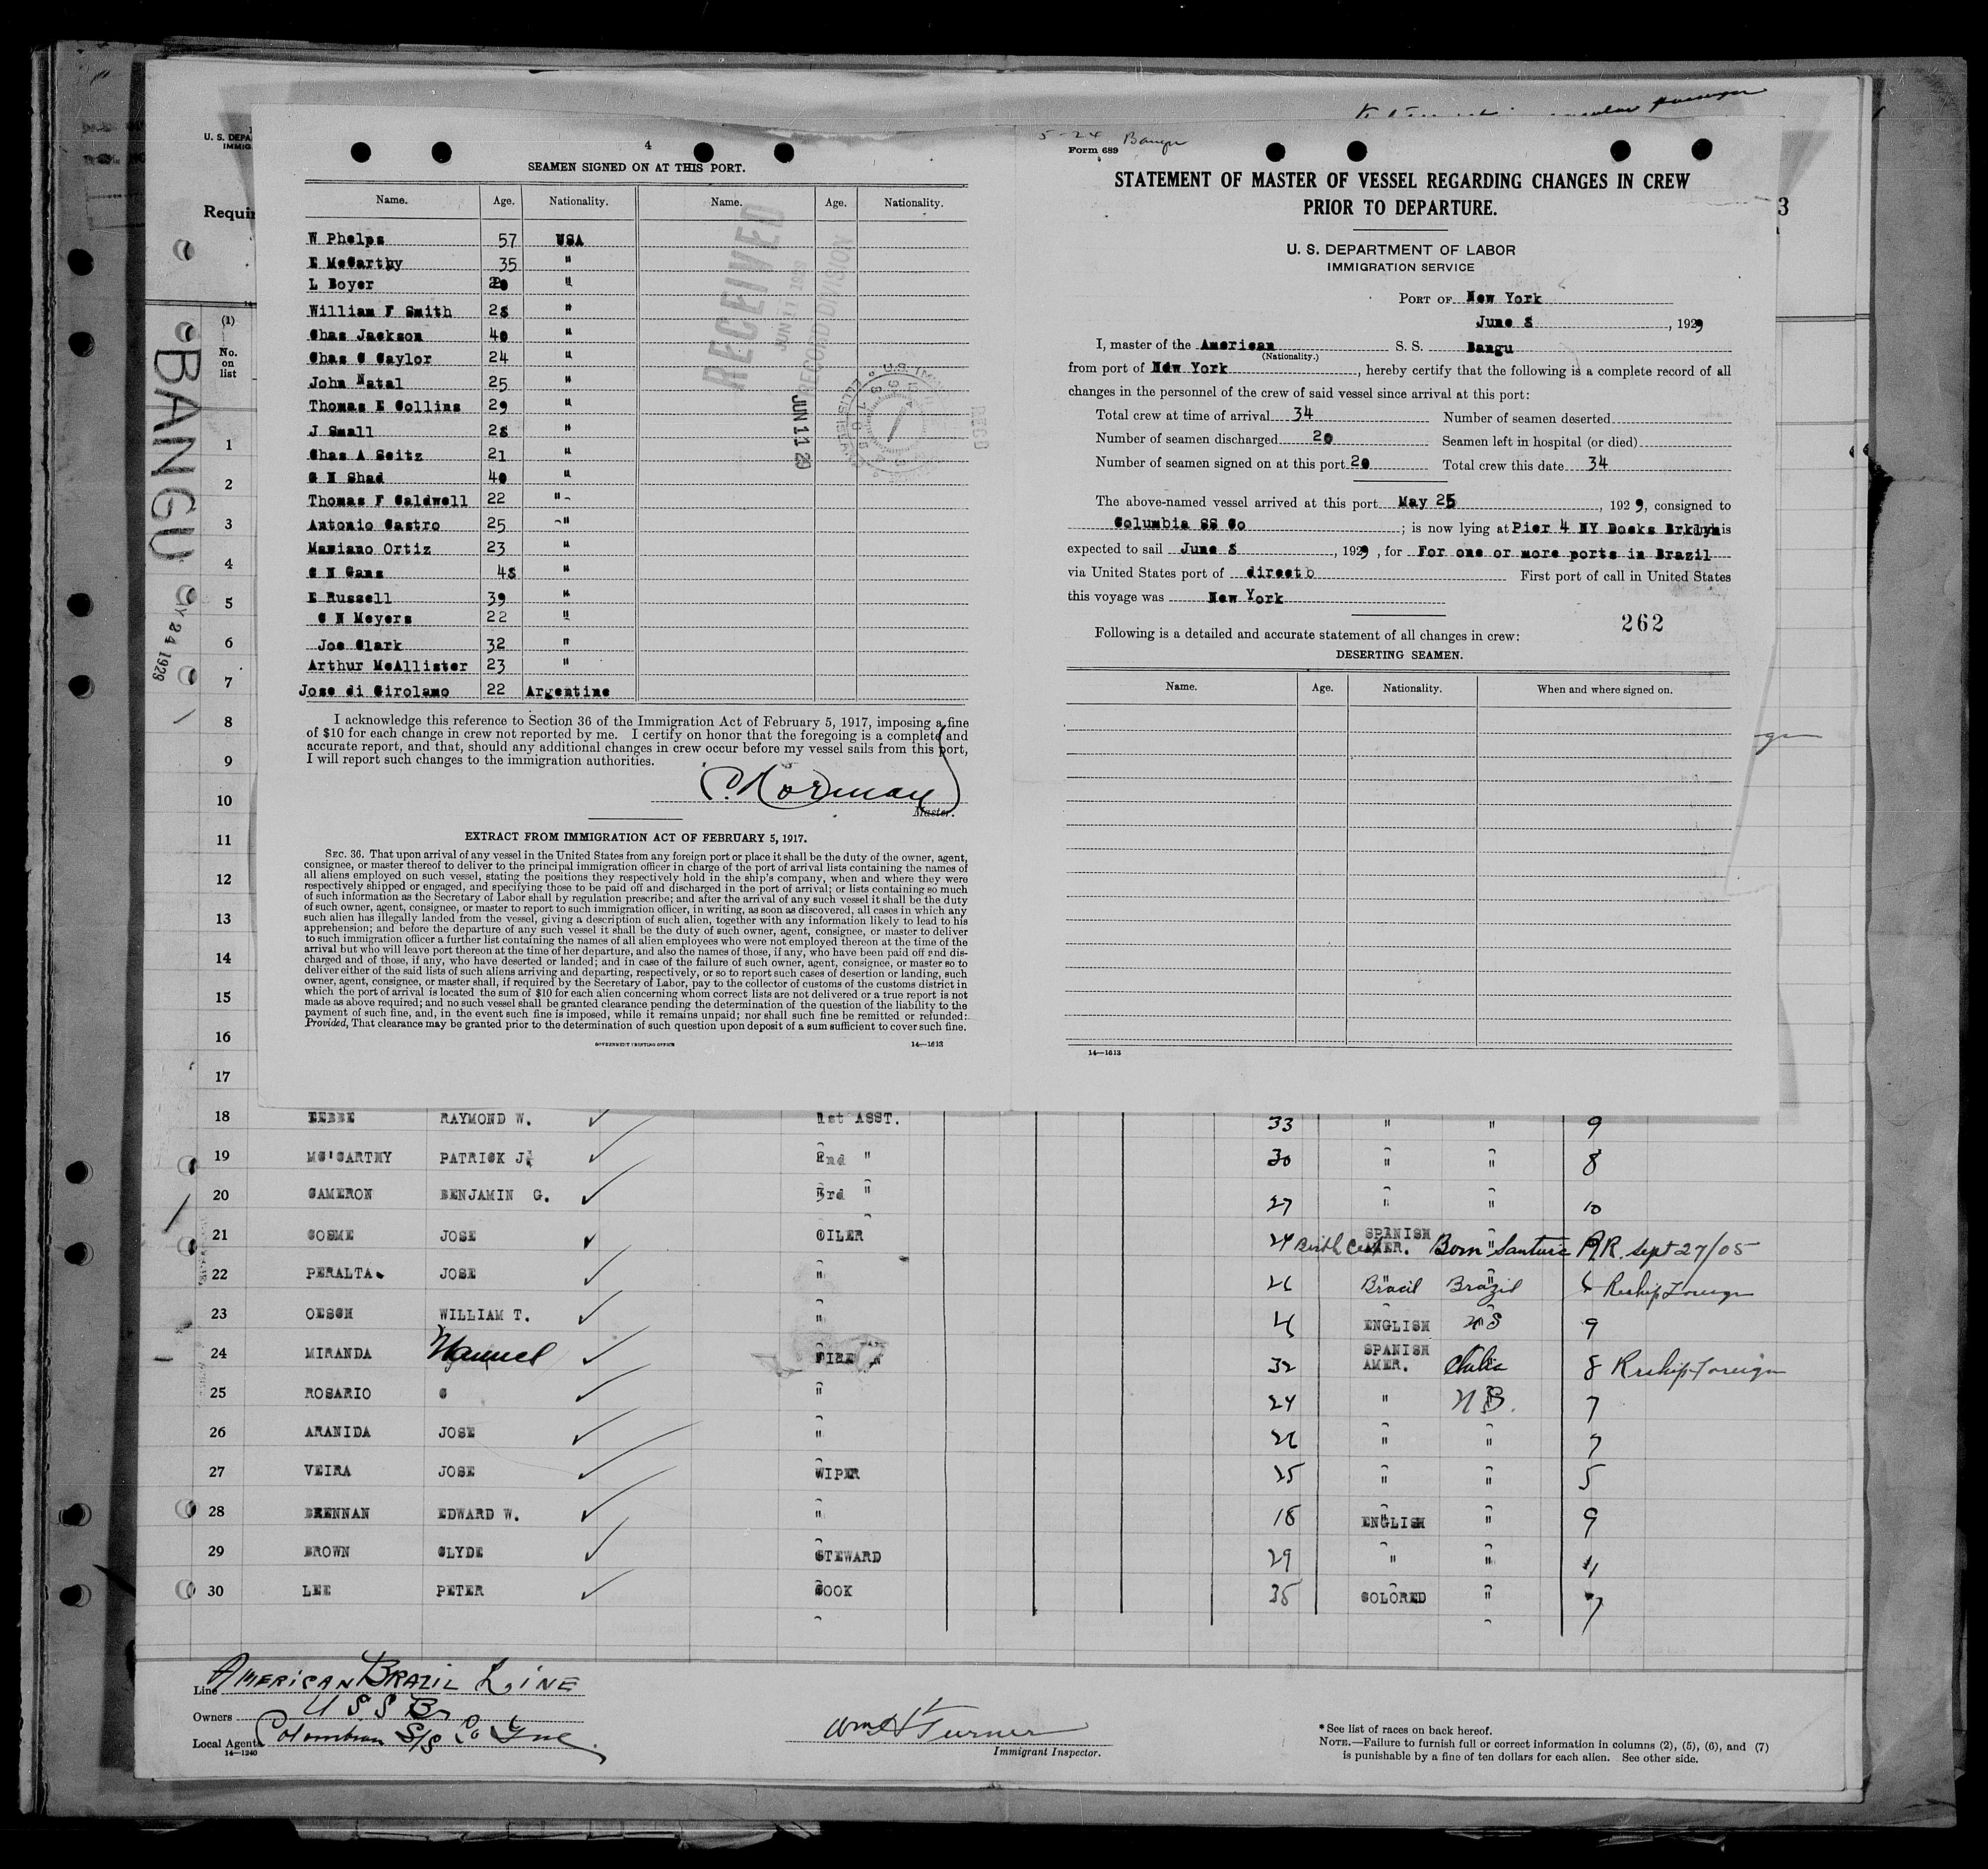 U. S. DEPA
IMMIG
Requir
(1)
No.
on
list
BANGU
4
SEAMEN SIGNED ON AT THIS PORT.
Name. Age. Nationality. Name. Age. Nationality.
W Phelps 57 USA
E McCarthy 35 "
L Boyer 20 "
William F Smith 28 "
Chas Jackson 40 "
Chas C Caylor 24 "
John Natal 25 "
Thomas E Collins 29 "
J Small 28 "
Chas A Seitz 21 "
G H Shad 40 "
Thomas F Caldwell 22 "
Antonio Castro 25 "
Mamiano Ortiz 23 "
C N Gans 48 "
E Russell 39 "
C N Meyers 22 "
Joe Clark 32 "
Arthur McAllister 23 "
Jose di Girolamo 22 Argentine
RECEIVED
JUN 11 1929
RECORD DIVISION
JUN 11 29
RECD
I acknowledge this reference to Section 36 of the Immigration Act of February 5, 1917, imposing a fine
of $10 for each change in crew not reported by me. I certify on honor that the foregoing is a complete and
accurate report, and that, should any additional changes in crew occur before my vessel sails from this port,
I will report such changes to the immigration authorities.
Master.
EXTRACT FROM IMMIGRATION ACT OF FEBRUARY 5, 1917.
SEC. 36. That upon arrival of any vessel in the United States from any foreign port or place it shall be the duty of the owner, agent,
consignee, or master thereof to deliver to the principal immigration officer in charge of the port of arrival lists containing the names of
all aliens employed on such vessel, stating the positions they respectively hold in the ship's company, when and where they were
respectively shipped or engaged, and specifying those to be paid off and discharged in the port of arrival; or lists containing so much
of such information as the Secretary of Labor shall by regulation prescribe; and after the arrival of any such vessel it shall be the duty
of such owner, agent, consignee, or master to report to such immigration officer, in writing, as soon as discovered, all cases in which any
such alien has illegally landed from the vessel, giving a description of such alien, together with any information likely to lead to his
apprehension; and before the departure of any such vessel it shall be the duty of such owner, agent, consignee, or master to deliver
to such immigration officer a further list containing the names of all alien employees who were not employed thereon at the time of the
arrival but who will leave port thereon at the time of her departure, and also the names of those, if any, who have been paid off and dis-
charged and of those, if any, who have deserted or landed; and in case of the failure of such owner, agent, consignee, or master so to
deliver either of the said lists of such aliens arriving and departing, respectively, or so to report such cases of desertion or landing, such
owner, agent, consignee, or master shall, if required by the Secretary of Labor, pay to the collector of customs of the customs district in
which the port of arrival is located the sum of $10 for each alien concerning whom correct lists are not delivered or a true report is not
made as above required; and no such vessel shall be granted clearance pending the determination of the question of the liability to the
payment of such fine, and, in the event such fine is imposed, while it remains unpaid; nor shall such fine be remitted or refunded:
Provided, That clearance may be granted prior to the determination of such question upon deposit of a sum sufficient to cover such fine.
GOVERNMENT PRINTING OFFICE 14—1613
5-24 Bangu
Form 689
STATEMENT OF MASTER OF VESSEL REGARDING CHANGES IN CREW
PRIOR TO DEPARTURE.
U. S. DEPARTMENT OF LABOR
IMMIGRATION SERVICE
PORT OF New York
June 8, 1929
I, master of the American S. S. Bangu
(Nationality.)
from port of New York, hereby certify that the following is a complete record of all
changes in the personnel of the crew of said vessel since arrival at this port:
Total crew at time of arrival 34 Number of seamen deserted
Number of seamen discharged 20 Seamen left in hospital (or died)
Number of seamen signed on at this port 20 Total crew this date 34
The above-named vessel arrived at this port May 25, 1929, consigned to
Columbia SS Co; is now lying at Pier 4 NY Docks Brklyn is
expected to sail June 8, 1929, for For one or more ports in Brazil
via United States port of direct First port of call in United States
this voyage was New York
262
Following is a detailed and accurate statement of all changes in crew:
DESERTING SEAMEN.
Name. Age. Nationality. When and where signed on.
14—1613
3
1
2
3
4
5
6
7
8
9
10
11
12
13
14
15
16
17
18 BEBEE RAYMOND W. 1st ASST. 33 " " 9
19 MC'CARTHY PATRICK J. 2nd " 30 " " 8
20 CAMERON BENJAMIN G. 3rd " 27 " " 10
21 COSME JOSE OILER 24 Birth Cert SPANISH AMER. Born Santurce P.R. Sept 27/05
22 PERALTA JOSE " 26 Brazil Brazil 6 Reship Foreign
23 OESCH WILLIAM T. " ENGLISH US 9
24 MIRANDA Manuel FIREMAN 32 SPANISH AMER. Chile 8 Reship Foreign
25 ROSARIO C " 24 " 7
26 ARANIDA JOSE " 26 " " 7
27 VEIRA JOSE WIPER 25 " " 5
28 BRENNAN EDWARD W. " 18 ENGLISH " 9
29 BROWN CLYDE STEWARD 29 " " 11
30 LEE PETER COOK 35 COLORED " 7
Line AMERICAN BRAZIL LINE
Owners U S S B
Local Agents Colombian S/S Co Inc.
14—1240
Wm H Turner
Immigrant Inspector.
* See list of races on back hereof.
NOTE.—Failure to furnish full or correct information in columns (2), (5), (6), and (7)
is punishable by a fine of ten dollars for each alien. See other side.